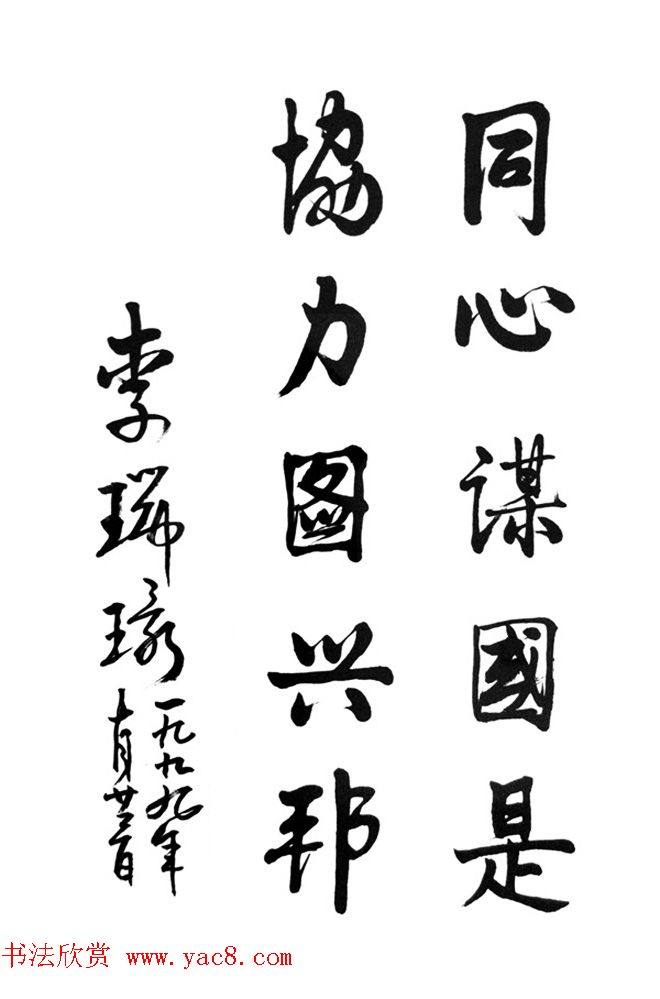 同心謀國是
協力图兴邦
李瑞環
一九九九年
十月廿二日
书法欣赏 www.yac8.com